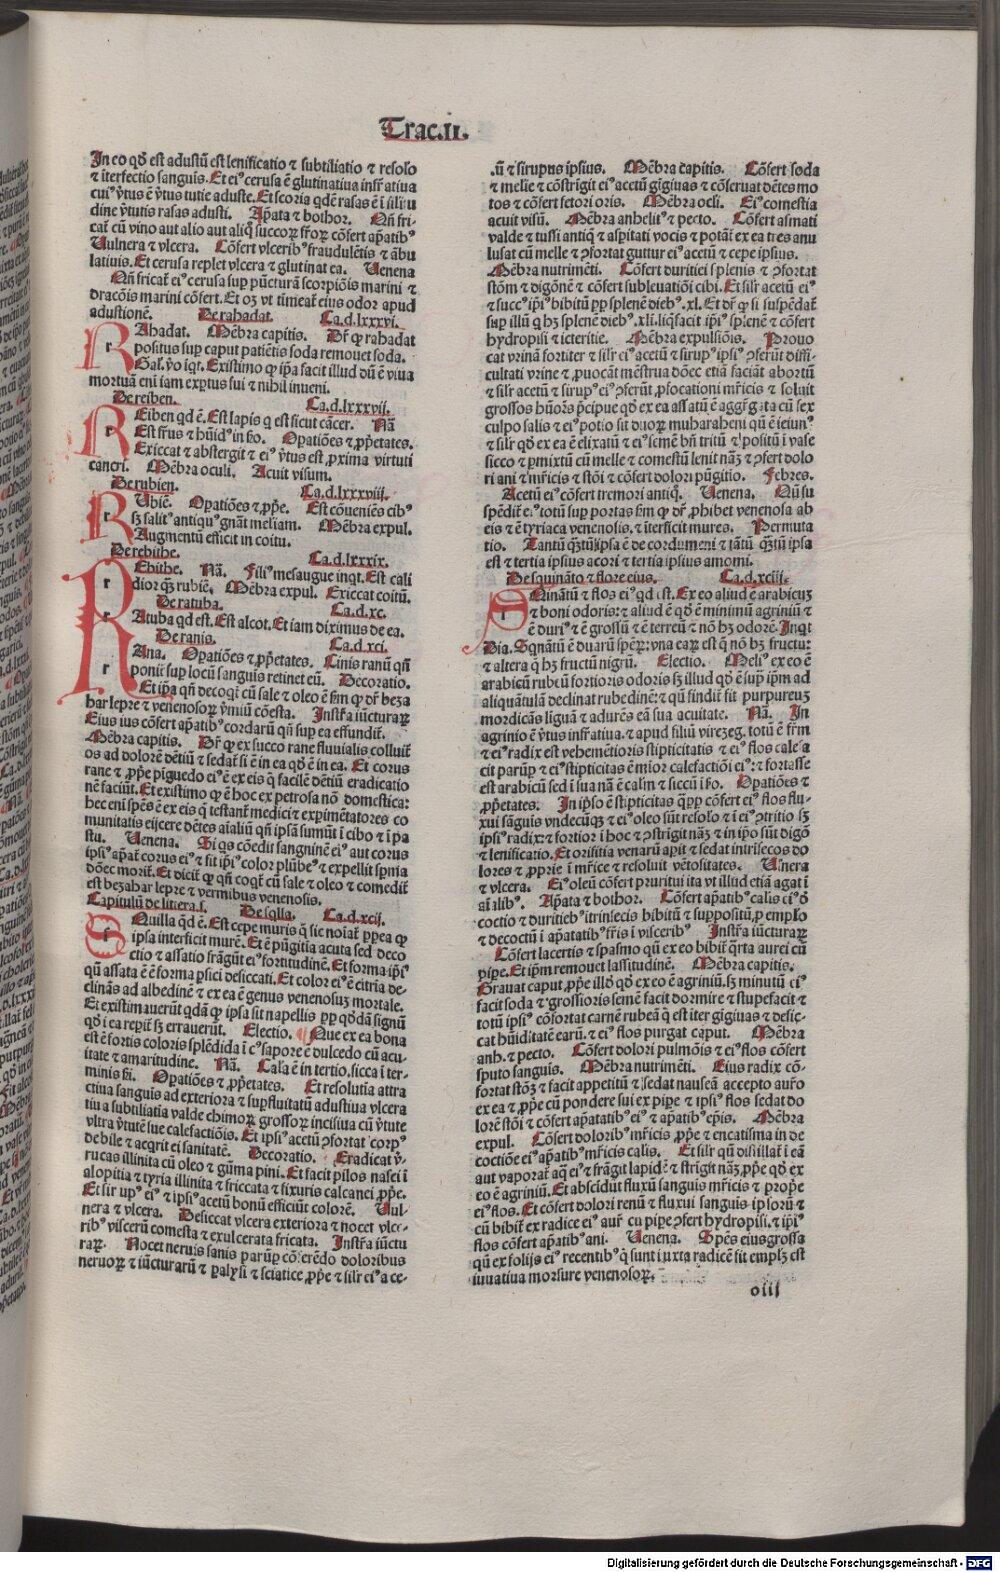 Trac.II.
In eo qđ est adustū est lenificatio ⁊ subtiliatio ⁊ resolo
⁊ īterfectio sanguis. Et ei⁹ cerusa ē glutinatiua infrigatiua
cui⁹ v̄tus ē v̄tus tutie aduste. Et scoria qdē rasas ē ī siliu
dine v̄tutis rasas adusti. Apāta ⁊ bothor. Qn̄ fri-
cat̄ cū vino aut alio aut aliq̄ succoꝝ ffoꝝ cōfert apātib⁹
Vulnera ⁊ vlcera. Cōfert vlcerib⁹ fraudulētis ⁊ ābu
latiuis. Et cerusa replet vlcera ⁊ glutinat ea. Venena
Qn̄ fricat̄ ei⁹ cerusa sup pūcturā scorpiōis marini ⁊
dracōis marini cōfert. Et oꝫ vt timeat̄ eius odor apud
adustionē. De rahadat. Ca.d.lxxxvi.
RAhadat. Mēbra capitis. Dr̄ ꝙ rahadat
positus sup caput patiētis soda remouet soda.
Gal. v̄o iqt. Existimo ꝙ ip̄a facit illud dū ē viua
mortuā eni iam exptus sui ⁊ nihil inueni.
De reiben. Ca.d.lxxxvii.
REiben qd ē. Est lapis q est sicut cācer. Nā
Est frūs ⁊ hūid⁹ in ṡo. Opatiōes ⁊ ꝓpetates.
Exiccat ⁊ abstergit ⁊ ei⁹ v̄tus est ꝓxima virtuti
cancri. Mēbra oculi. Acuit visum.
De rubien. Ca.d.lxxxviii.
RUbiē. Opatiōes ⁊ ꝓpe. Est cōueniēs cib⁹
sꝫ salit⁹ antiqu⁹ gnāt meliam. Mēbra expul.
Augmentū efficit in coitu.
De rebithe. Ca.d.lxxxix.
REbithe. Nā. Fili⁹ mesaugue inqt. Est cali
dior qꝫ rubiē. Mēbra expul. Exiccat coitū.
De ratuba. Ca.d.xc.
RAtuba qd est. Est alcot. Et iam diximus de ea.
De ranis. Ca.d.xci.
RAna. Opatiōes ⁊ ꝓpetates. Cinis ranū qn̄
ponit̄ sup locū sanguis retinet eū. Decoratio.
Et ip̄a qn̄ decoqt̄ cū sale ⁊ oleo ē sm̄ ꝙ dr̄ beza
har lepre ⁊ venenosoꝝ v̄miū cōesta. Instra iūcturaꝝ
Eius ius cōfert apātib⁹ cordarū qn̄ sup ea effundit̄.
Mēbra capitis. Dr̄ ꝙ ex succo rane fluuialis colluit̄
os ad dolorē dētiū ⁊ sedat̄ si ē in ea qđ ē in ea. Et corus
rane ⁊ ꝓpe piguedo ei⁹ ē ex eis q̄ facilē dētiū eradicatio
nē faciūt. Et existimo ꝙ ē hoc ex petrosa nō domestica:
hec eni spēs ē ex eis q̄ testant̄ medici ⁊ expimētatores co
munitatis eijcere dētes aialiū qn̄ ipsā sumūt ī cibo ⁊ ī pa
stu. Venena. Si qs cōedit sangninē ei⁹ aut corus
ipsi⁹ apāt̄ corus ei⁹ ⁊ fit ipi⁹ color plūbe⁹ ⁊ expellit spma
dōec morit̄. Et dicit̄ ꝙ qn̄ coqt̄ cū sale ⁊ oleo ⁊ comedit̄
est bezahar lepre ⁊ vermibus venenosis.
Capitulū de litera s. De sqlla. Ca.d.xcii.
SQuilla qđ ē. Est cepe muris q̄ sic noīat̄ ꝓpea ꝙ
ipsa interficit murē. Et ē pūgitia acuta sed deco
ctio ⁊ assatio frāgūt ei⁹ fortitudinē. Et forma ipi⁹
qn̄ assata ē ē forma psici desiccati. Et color ei⁹ ē citria de-
clinās ad albedinē ⁊ ex ea ē genus venenosuꝫ mortale.
Et existimauerūt qdā ꝙ ipsa sit napellis ꝓp qđā signū
qđ i ea repit̄ sꝫ errauerūt. Electio. Que ex ea bona
est ē fortis coloris splēdida ī c⁹ sapore ē dulcedo cū acu-
itate ⁊ amaritudine. Nā. Cala ē in tertio, sicca ī ter-
minis ṡi. Opatiōes ⁊ ꝓpetates. Et resolutia attra
ctiua sanguis ad exteriora ⁊ supfluitatū adustiua vlcera
tiua subtiliatia valde chimoꝝ grossoꝝ incisiua cū v̄tute
vltra v̄tutē sue calefactiōis. Et ipsi⁹ acetū ꝯfortat corp⁹
debile ⁊ acqrit ei sanitatē. Decoratio. Eradicat v̄-
rucas illinita cū oleo ⁊ gūma pini. Et facit pilos nasei ī
alopitia ⁊ tyria illinita ⁊ friccata ⁊ fixuris calcanei ꝓpe.
Et sirup⁹ ei⁹ ⁊ ipsi⁹ acetū bonū efficiūt colorē. Vul-
nera ⁊ vlcera. Desiccat vlcera exteriora ⁊ nocet vlce-
rib⁹ viscerū comesta ⁊ exulcerata fricata. Instra iūctu
raꝝ. Nocet neruis sanis parūp cōferēdo doloribus
neruoꝝ ⁊ iūcturarū ⁊ paralysi ⁊ sciatice ꝓpe ⁊ silr ei⁹ a ce-
.ū ⁊ sirupus ipsius. Mēbra capitis. Cōfert soda
⁊ melie ⁊ cōstrigit ei⁹ acetū gīgiuas ⁊ cōseruat dētes mo
tos ⁊ cōfert fetori oris. Mēbra ocli. Ei⁹ comestia
acuit visū. Mēbra anhelit⁹ ⁊ pecto. Cōfert asmati
valde ⁊ tussi antiq̄ ⁊ aspitati vocis ⁊ potāt̄ ex ea tres anu
lusat cū melle ⁊ ꝯfortat guttur ei⁹ acetū ⁊ cepe ipsius.
Mēbra nutrimēti. Cōfert duritiei splenis ⁊ ꝯfortat
stōm̄ ⁊ digōnē ⁊ cōfert subleuatiōi cibi. Et silr acetū ei⁹
⁊ succ⁹ ipi⁹ bibitū ꝓp splenē dieb⁹.xl. Et dr̄ ꝙ si suspēdat̄
sup illū q hꝫ splenē dieb⁹.xli. liqfacit ipi⁹ splenē ⁊ cōfert
hydropisi ⁊ ictericie. Mēbra expulsiōis. Prouo
cat vrinā fortiter ⁊ silr ei⁹ acetū ⁊ sirup⁹ ipsi⁹ ꝯferūt diffi-
cultati vrine ⁊ ꝓuocāt mēstrua dōec etiā faciāt abortū
⁊ silr acetū ⁊ sirup⁹ ei⁹ ꝯferūt ꝓfocationi mr̄icis ⁊ soluit
grossos hūoēs p̄cipue qđ ex ea assatū ē aggr̄gata cū sex
culpo salis ⁊ ei⁹ potio sit duoꝝ muharabeni qū ē ieiun⁹
⁊ silr qđ ex ea ē elixatū ⁊ ei⁹ semē bn̄ tritū ⁊ positū ī vase
sicco ⁊ pmixtū cū melle ⁊ comestū lenit nāꝫ ⁊ ꝯfert dolo
ri ani ⁊ mr̄icis ⁊ stōi ⁊ cōfert dolori pūgitio. Febres.
Acetū ei⁹ cōfert tremori antiq̄. Venena. Qn̄ su
spēdit̄ e⁹ totū sup portas sm̄ ꝙ dr̄ ꝓhibet venenosa ab
eis ⁊ ē tyriaca venenosis. ⁊ īterficit mures. Permuta
tio. Tantū qꝫtū ipsa ē de cordumeni ⁊ tātū qꝫtū ipsa
est ⁊ tertia ipsius acori ⁊ tertia ipsius amomi.
De squināto ⁊ flore eius. Ca.d.xciii.
SQinātū ⁊ flos ei⁹ qd ēst. Ex eo aliud ē arabicuꝫ
⁊ boni odoris: ⁊ aliud ē qđ ē minimū agriniū ⁊
ē duri⁹ ⁊ ē grossū ⁊ ē terreū ⁊ nō hꝫ odorē. Inqt
Dia. Sqnātū ē duarū speꝝ: vna eaꝝ est q̄ nō hꝫ fructū:
⁊ altera q̄ hꝫ fructū nigrū. Electio. Meli⁹ ex eo ē
arabicū rubeū fortioris odoris sꝫ illud qđ ē sup ip̄m ad
aliquātulā declinat rubedinē: ⁊ qn̄ findit̄ fit purpureuꝫ
mordicās liguā ⁊ adurēs eā sua acuitate. Nā. In
agrinio ē v̄tus infrātiua. ⁊ apud filiū vireʒeg. totū ē frīm
⁊ ei⁹ radix est vehemētioris stipticitatis ⁊ ei⁹ flos calefa
cit parūp ⁊ ei⁹ stipticitas ē mior calefactiōi ei⁹: ⁊ fortasse
est arabicū sed i sua nā ē calm ⁊ siccū i ṡo. Opatiōes ⁊
ꝓpetates. In ipso ē stipticitas qꝓp cōfert ei⁹ flos flu-
xui sāguis vndecūqꝫ ⁊ ei⁹ oleo sūt resolo ⁊ ī ei⁹ ꝯtritio sꝫ
ipsi⁹ radix: ⁊ fortior i hoc ⁊ ꝯstrigit nāꝫ ⁊ in ip̄o sūt digō
⁊ lenificatio. Et orifitia venarū apit ⁊ sedat intrīsecos do
lores ⁊ ꝓprie ī mr̄ice ⁊ resoluit vētositates. Vlnera
⁊ vlcera. Ei⁹ oleū cōfert pruritui ita vt illud etiā agat ī
aīalib⁹. Apāta ⁊ bothor. Cōfert apātib⁹ calis ei⁹ đ
coctio ⁊ duritieb⁹ itrinsecis bibitū ⁊ suppositū, p emplo
⁊ decoctū ī apātatib⁹ fr̄is ī visceribˀ. Instra iūcturaꝝ
Cōfert lacertis ⁊ spasmo qū ex eo bibit̄ q̄rta aurei cū
pipe. Et ip̄m remouet lassitudinē. Mēbra capitis.
Grauat caput, ꝓpe illđ qđ ex eo ē agriniū. sꝫ minutū ei⁹
facit soda ⁊ grossioris semē facit dormire ⁊ stupefacit ⁊
totū ipsi⁹ cōfortat carnē rubeā q̄ est iter gīgiuas ⁊ desic-
cat hūiditatē earū. ⁊ ei⁹ flos purgat caput. Mēbra
anh. ⁊ pecto. Cōfert dolori pulmōis ⁊ ei⁹ flos cōfert
sputo sanguis. Mēbra nutrimēti. Eius radix cō-
fortat stōꝫ ⁊ facit appetitū ⁊ sedat nauseā accepto auro
ex ea ⁊ ꝓpe cū pondere sui ex pipe ⁊ ipsi⁹ flos sedat do
lorē stōi ⁊ cōfert apātatib⁹ ei⁹ ⁊ apātib⁹ epis. Mēbra
expul. Cōfert dolorib⁹ mr̄icis ꝓpe ⁊ encatisma in de
coctiōe ei⁹ apātib⁹ mr̄icis calis. Et silr qn̄ distillat̄ ī eā
aut vaporat̄ aq̄ ei⁹ ⁊ frāgit lapidē ⁊ strigit nāꝫ, ꝓpe qđ ex
eo ē agriniū. Et abscidit fluxū sanguis mr̄icis ⁊ prope
ei⁹ flos. Et cōfert dolori renū ⁊ fluxui sanguis ipsorū ⁊
cū bibit̄ ex radice ei⁹ aur̄ cū pipe ꝯfert hydropisi. ⁊ ipi⁹
flos cōfert apātib⁹ ani. Venena. Spēs eius grossa
qn̄ ex folijs ei⁹ recentib⁹ q̄ sunt iuxta radicē fit emplꝫ est
iuuatiua morsure venenosoꝝ.
oiii
Digitalisierung gefördert durch die Deutsche Forschungsgemeinschaft - DFG